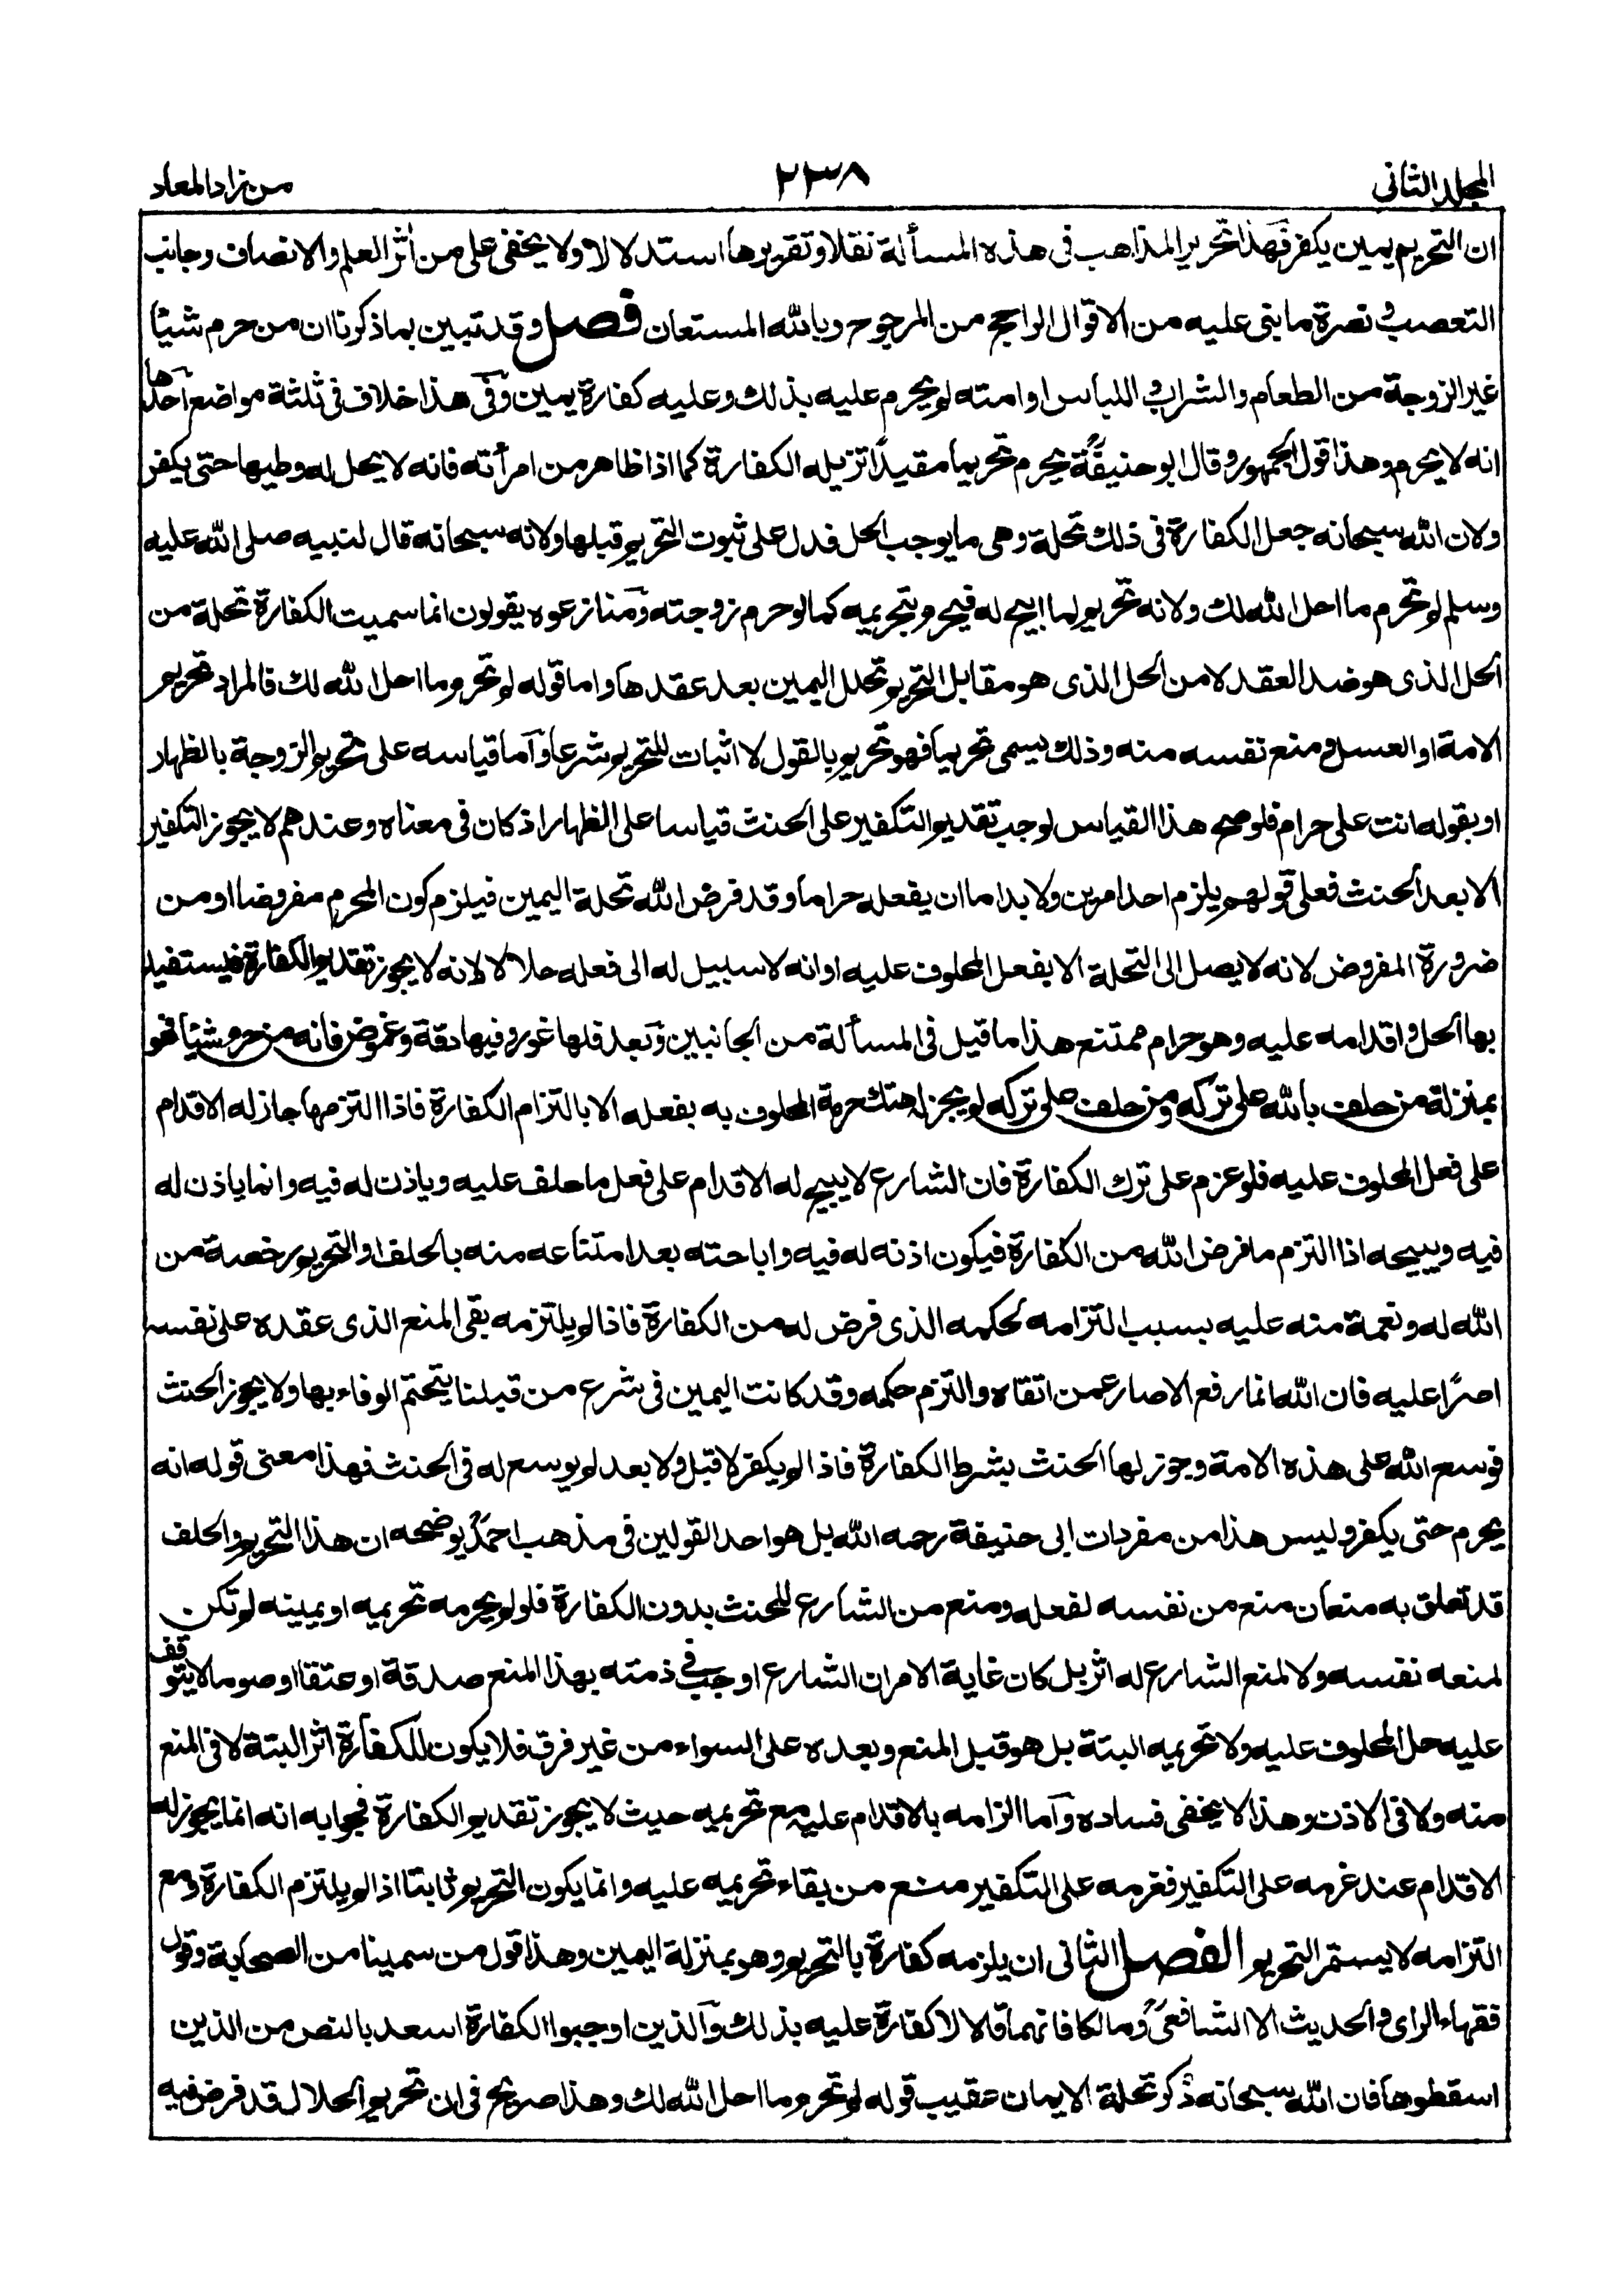 المجلد الثانى
٢٣٨
من زاد المعاد
ان التحريم يمين يكفر فهذا تحرير المذاهب فى هذه المسألة نقلا وتقريرها استدلالا ولا يخفى على من أثر العلم والانصاف وجانب
التعصب و نصرة ما بنى عليه من الاقوال الراجح من المرجوح وبالله المستعان فصل وقد تبين بما ذكرنا ان من حرم شيئا
غير الزوجة من الطعام والشراب و اللباس او امته لم يحرم عليه بذلك وعليه كفارة يمين وفى هذا خلاف فى ثلثة مواضع احدها
انه لا يحرم وهذا قول الجمهور وقال ابو حنيفة يحرم تحريما مقيدا تزيله الكفارة كما اذا ظاهر من امرأته فانه لا يحل له وطيها حتى يكفر
ولان الله سبحانه جعل الكفارة فى ذلك تحلة وهى ما يوجب الحل فدل على ثبوت التحريم قبلها ولانه سبحانه قال لنبيه صلى الله عليه
وسلم لم تحرم ما احل الله لك ولانه تحريم لما ابيح له فيحرم بتحريمه كما لو حرم زوجته ومنازعوه يقولون انما سميت الكفارة تحلة من
الحل الذى هو ضد العقد لا من الحل الذى هو مقابل التحريم تحلل اليمين بعد عقدها واما قوله لم تحرم ما احل الله لك فالمراد تحريم
الامة او العسل و منع نفسه منه وذلك يسمى تحريما فهو تحريم بالقول لا اثبات للتحريم شرعا وآما قياسه على تحريم الزوجة بالظهار
او بقوله انت على حرام فلو صح هذا القياس لوجب تقديم التكفير على الحنث قياسا على الظهار اذ كان فى معناه وعندهم لا يجوز التكفير
الا بعد الحنث فعلى قولهم يلزم احد امرين ولا بد اما ان يفعله حراما وقد فرض الله تحلة اليمين فيلزم كون المحرم مفروضا او من
ضرورة المفروض لانه لا يصل الى التحلة الا بفعل المحلوف عليه او انه لا سبيل له الى فعله حلالا لانه لا يجوز تقديم الكفارة فيستفيد
بها الحل و اقدامه عليه وهو حرام ممتنع هذا ما قيل فى المسألة من الجانبين وبعد فلها غور وفيها دقة وغموض فانه من حرم شيئا فهو
بمنزلة من حلف بالله على تركه ومن حلف على تركه لم يجز له هتك حرمة المحلوف به بفعله الا بالتزام الكفارة فاذا التزمها جاز له الاقدام
على فعل المحلوف عليه فلو عزم على ترك الكفارة فان الشارع لا يبيح له الاقدام على فعل ما حلف عليه وياذن له فيه وانما ياذن له
فيه ويبيحه اذا التزم ما فرض الله من الكفارة فيكون اذنه له فيه واباحته بعد امتناعه منه بالحلف او التحريم رخصة من
الله له ونعمة منه عليه بسبب التزامه لحكمه الذى فرض له من الكفارة فاذا لم يلتزمه بقى المنع الذى عقده على نفسه
اصرًا عليه فان الله انما رفع الاصار عمن اتقاه والتزم حكمه وقد كانت اليمين فى شرع من قبلنا يتحتم الوفاء بها ولا يجوز الحنث
فوسع الله على هذه الامة وجوز لها الحنث بشرط الكفارة فاذا لم يكفر لا قبل ولا بعد لم يوسع له فى الحنث فهذا معنى قوله انه
يحرم حتى يكفر وليس هذا من مفردات ابى حنيفة رحمه الله بل هو احد القولين فى مذهب احمد يوضحه ان هذا التحريم والحلف
قد تعلق به منعان منع من نفسه لفعله ومنع من الشارع للحنث بدون الكفارة فلو لم يحرمه تحريمه او يمينه لم تكن
لمنعه نفسه ولا لمنع الشارع له اثر بل كان غاية الامر ان الشارع اوجب فى ذمته بهذا المنع صدقة او عتقا او صوما لا يتوقف
عليه حل المحلوف عليه ولا تحريمه البتة بل هو قبل المنع وبعده على السواء من غير فرق فلا يكون للكفارة اثر البتة لا فى المنع
منه ولا فى الاذن وهذا لا يخفى فساده وآما الزامه بالاقدام عليه مع تحريمه حيث لا يجوز تقديم الكفارة فجوابه انه انما يجوز له
الاقدام عند عزمه على التكفير فعزمه على التكفير منع من بقاء تحريمه عليه وانما يكون التحريم ثابتا اذا لم يلتزم الكفارة ومع
التزامه لا يستمر التحريم الفصل الثانى ان يلزمه كفارة بالتحريم وهو بمنزلة اليمين وهذا قول من سمينا من الصحابة وقول
فقهاء الراى و الحديث الا الشافعى ومالكا فانهما قالا لا كفارة عليه بذلك وآلذين اوجبوا الكفارة اسعد بالنص من الذين
اسقطوها فان الله سبحانه ذكر تحلة الايمان عقيب قوله لم تحرم ما احل الله لك وهذا صريح فى ان تحريم الحلال قد فرض فيه